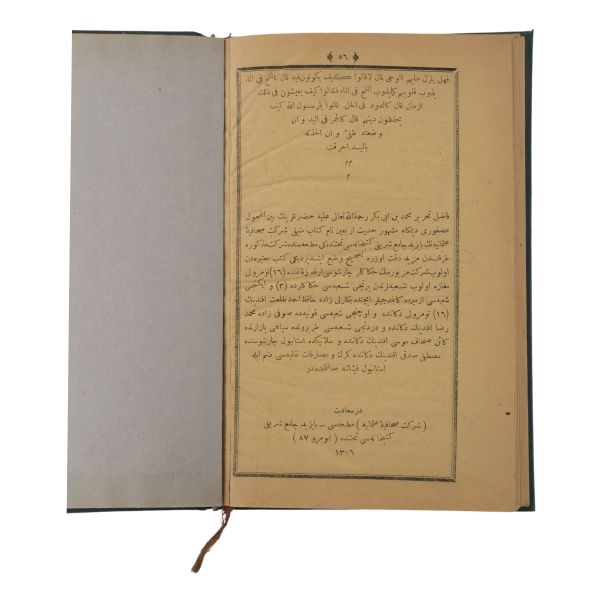 ﴿ ٥٦ ﴾
فهل ينزل عليهم الوحى قال لا قالوا كيف يكونون فيه قال كالملح فى الماء
يذوب قلوبهم كما يذوب الملح فى الماء فقالوا كيف يعيشون فى ذلك
الزمان قال كالدود فى الخل قالوا يا رسول الله كيف
يحفظون دينهم قال كالجمر فى اليد و ان
وضعته طفئ و ان اخذته
باليد احرقت
م م
م
فاضل محرير محمد بن ابى بكر رحمة الله تعالى عليه حضرتلرينك بين الفحول
عصفورى ديمكله مشهور حديث اربعين نام كتاب منيفى شركت صحافيۀ
عثمانيه‌نك بايزيد جامع شريفى كتبخانه‌سى تحتنده‌كى مطبعه‌سنده شركت مذكوره
طرفندن مزيد دقت اوزره تصحيح وطبع ايتديرديكى كتب معتبره‌دن
اولوب شركت مزبوره‌نك حكاكلر چارشوسى ارقه زقاغنده (١٦) نومرولى
مغازه اولوب شعبه‌لرندن برنجى شعبه‌سى حكاكلرده (٣) و ايكنجى
شعبه‌سى ازميرده كاغدجيلر ايچنده حافظ احمد طلعت افندينك
(١٦) نومرولى دكاننده و اوچنجى شعبه‌سى قونيه‌ده صوفى زاده محمد
رضا افندينك دكاننده و دردنجى شعبه‌سى طربزونده سپاهى پازارنده
كائن صحاف موسى افندينك دكاننده و سلانيكده استانبول چارشوسنده
مصطفى صدقى افندينك دكاننده كرك و مصارفات نقليه‌سى ضم اله
استانبول فيئاتنه صاتلمقده‌در
در سعادت
( شركت صحافيۀ عثمانيه ) مطبعه‌سى ــ بايزيد جامع شريفى
كتبخانه‌سى تحتنده ( نومرو ٨٧ )
١٣٠٦